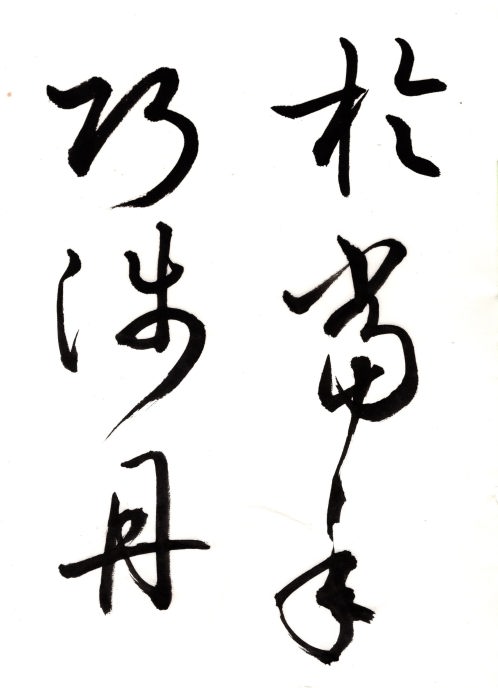 於當年
巧涉丹